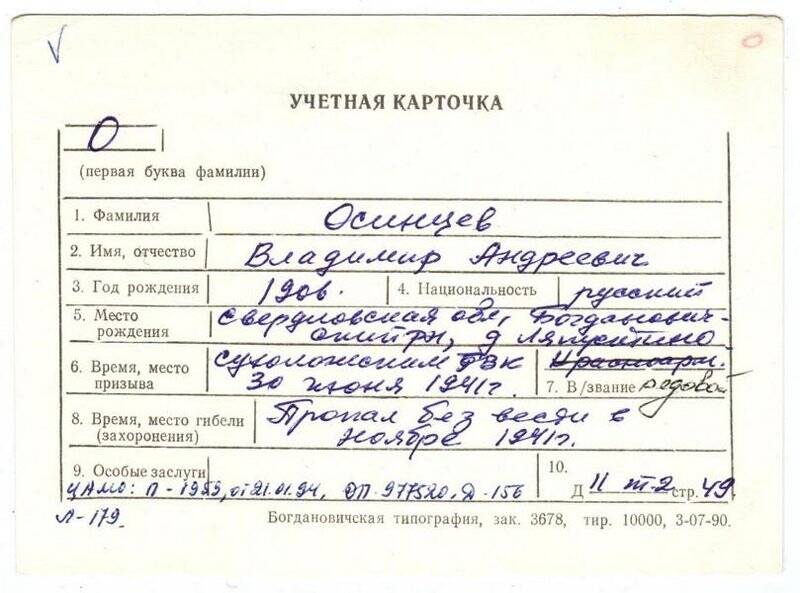 УЧЕТНАЯ КАРТОЧКА
О
(первая буква фамилии)
1. Фамилия Осинцев
2. Имя, отчество Владимир Андреевич
3. Год рождения 1906. 4. Национальность русский
5. Место рождения Свердловская обл, Богданович-
ский рн, д Ляпустино
6. Время, место призыва Сухоложским РВК
30 июня 1941г.
Красноарм.
7. В/звание рядовой
8. Время, место гибели (захоронения) Пропал без вести в
ноябре 1941г.
9. Особые заслуги
ЦАМО: П-1953, от 21.01.94, ОП. 977520. Д-156
Л-179.
10.
Д 11 т-2 стр. 49.
Богдановичская типография, зак. 3678, тир. 10000, 3-07-90.